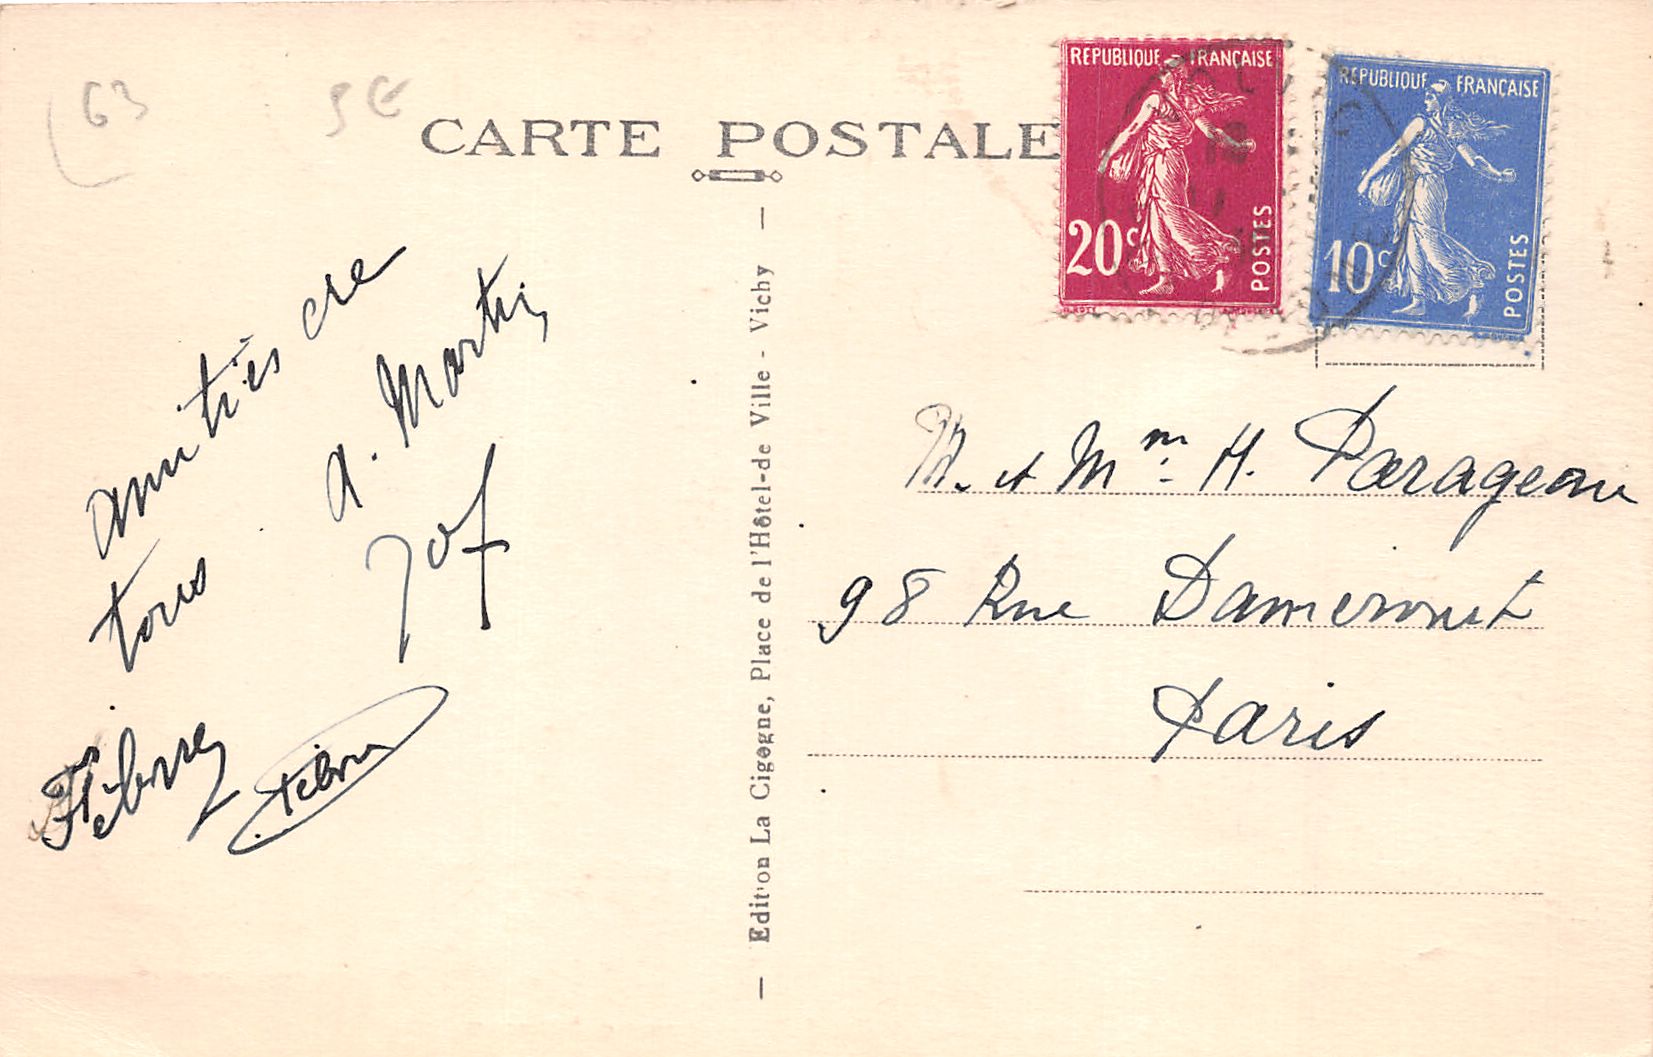 63
5€
CARTE POSTALE
REPUBLIQUE FRANÇAISE
20c
POSTES
REPUBLIQUE FRANÇAISE
10c
POSTES
amitiés de
tous
A. Martin
Jof
Fèbvre
— Edition La Cigogne, Place de l'Hôtel-de Ville - Vichy —
M. et Mme H. Parageau
98 Rue Damremont
Paris